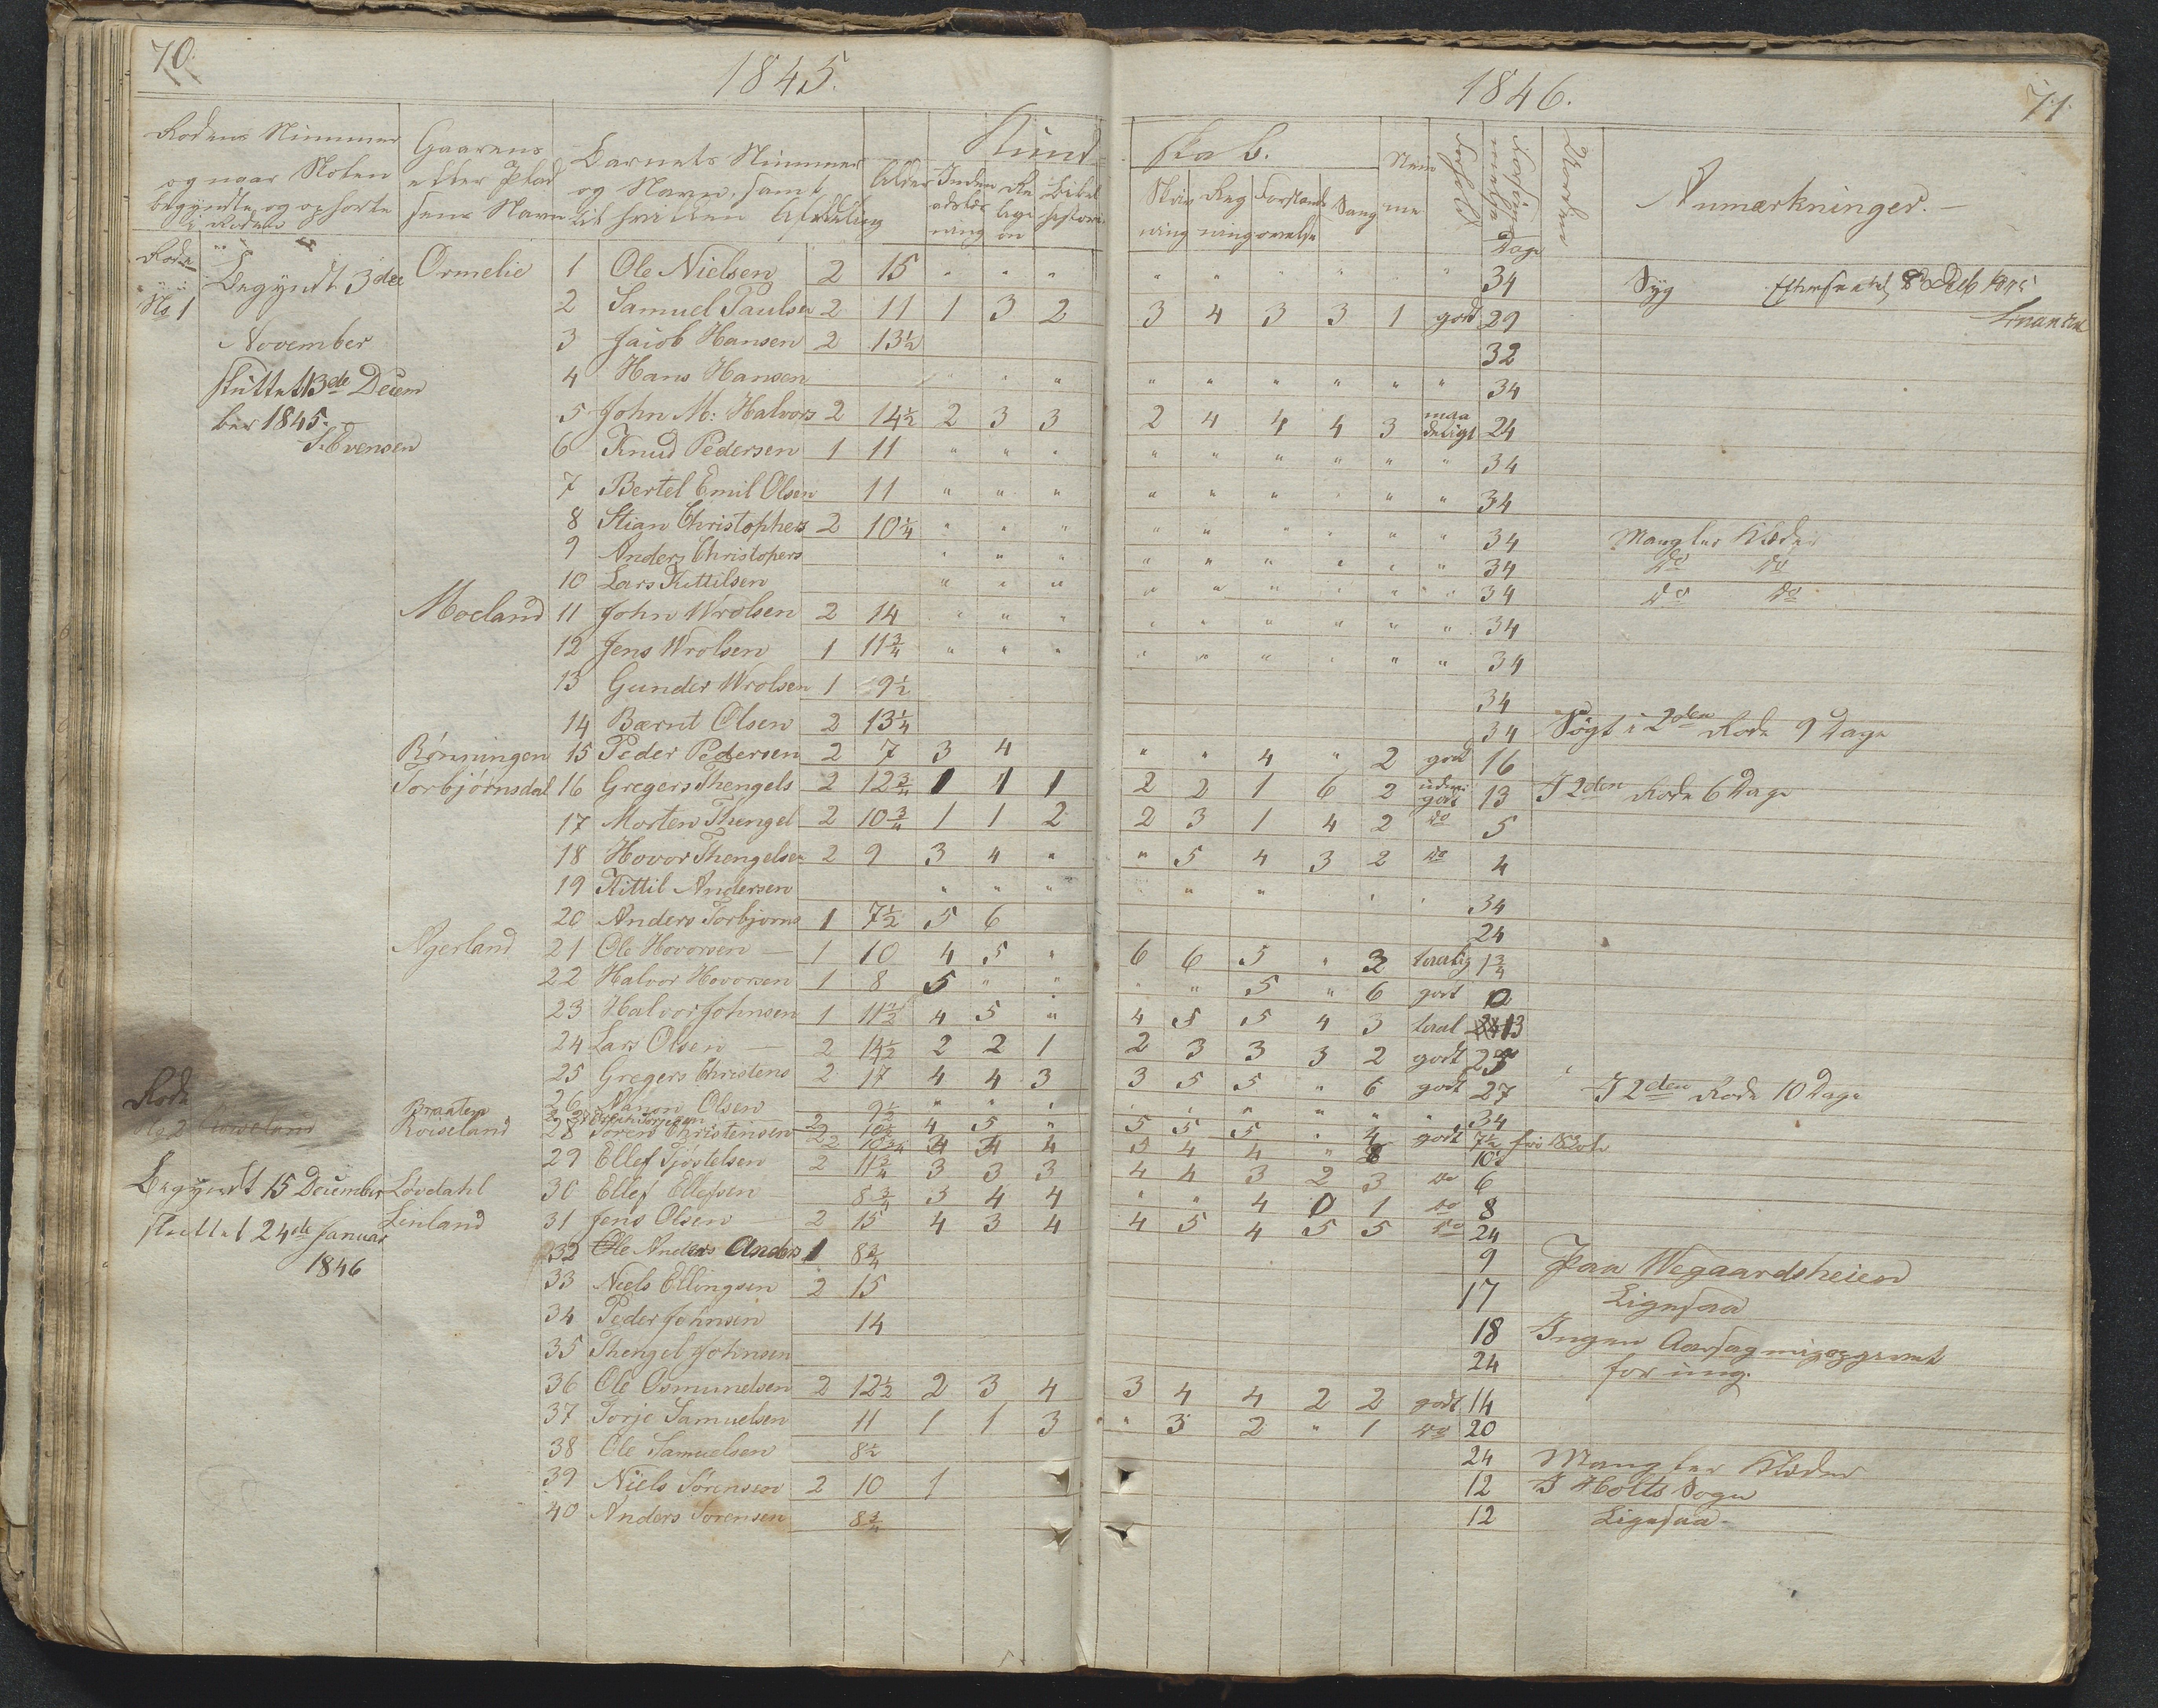 70.
1845.
1846.
71.
Rodens Nummer
og naar Skolen
begyndte og ophorte
i Roden
Gaardens
eller Plad
sens Navn
Barnets Nummer
og Navn, samt
til hvilken Afdeling
Alder
Kund
skab.
Inden
adslæs
ning
Re
ligi
on
Bibel
historie
Skriv
ning
Reg
ning
Forstands
øvelse
Sang
Nem
me
Forhold
Forsøm
melse
Dage
Anmærkninger.
Rode
No 1
Begyndt 3die
November
sluttet 13de Decem
ber 1845.
S. Evensen
Ormelie 1 Ole Nielsen 2 15 " " " " " " " " " 34 Syg
2 Samuel Paulsen 2 11 1 3 2 3 4 3 3 1 godt 29
3 Jacob Hansen 2 13½ 32
4 Hans Hansen " " " " " " " " 34
5 John M: Halvors 2 14½ 2 3 3 2 4 4 4 3 maa deligt 24
6 Knud Pedersen 1 11 " " " " " " " " " 34
7 Bertel Emil Olsen 11 " " " " " " " " " 34
8 Stian Christophers 2 10¼ " " " " " " " " " 34 Mangler Klæder
9 Anders Christopers " " " " " " " " " 34 do do
10 Lars Kittilsen " " " " " " " " " 34 do do
Moeland 11 John Wrolsen 2 14 " " " " " " " " " 34
12 Jens Wrolsen 1 11¾ " " " " " " " " " 34
13 Gunder Wrolsen 1 9½ 34
14 Bærnt Olsen 2 13¼ 34 Søgt i 2den Rode 9 Dage
Rønningen 15 Peder Pedersen 2 7 3 4 " " 4 " 2 godt 16
Torbjørnsdal 16 Gregers Thengels 2 12¾ 1 1 1 2 2 1 6 2 godt 13 I 2den Rode 6 Dage
17 Morten Thengel 2 10¾ 1 1 2 2 3 1 4 2 do 5
18 Hovor Thengelsen 2 9 3 4 " " 5 4 3 2 do 4
19 Kittil Andersen " " " " " " " 34
20 Anders Torbjorns 1 7½ 5 6 24
Agerland 21 Ole Hovorsen 1 10 4 5 " 6 6 5 " 3 taalig 1¾
22 Halvor Hovorsen 1 8 5 " " " " 5 " 6 godt 12
23 Halvor Johnsen 1 11½ 4 5 " 4 5 5 4 3 taal 13
24 Lars Olsen 2 14½ 2 2 1 2 3 3 3 2 godt 25
25 Gregers Christens 2 17 4 4 3 3 5 5 " 6 godt 27 I 2den Rode 10 Dage
Rode
No 2 Roiseland
Begyndt 15 December
sluttet 24de Januar
1846
Braaten 26 Olsen 9½ " " " " " " " " " 34
Roiseland 2 10½ 4 5 " 5 5 5 " 4 godt 7½
28 Soren Christensen 2 4 4 4 5 4 4 " 10
29 Ellef Tjøstelsen 2 11¾ 3 3 3 4 4 3 2 3 do 6
Løvdahl 30 Ellef Ellefsen 8¾ 3 4 4 " " 4 0 1 do 8
Linland 31 Jens Olsen 2 15 4 3 4 4 5 4 5 5 do 24
32 Ole Anders Anders 1 8¾ 9 Paa Wegaardsheien
33 Niels Ellingsen 2 15 17 Ligesaa
34 Peder Johnsen 14 18 Ingen Aarsag mig opgivet
35 Thengel Johnsen 24 for ung.
36 Ole Osmundsen 2 12½ 2 3 4 3 4 4 2 2 godt 14
37 Torje Samuelsen 11 1 1 3 " 3 2 " 1 do 20
38 Ole Samuelsen 8½ 24 Mangler Klæder
39 Niels Sörensen 2 10 1 12 I Holts Sogn
40 Anders Sorensen 8¾ 12 Ligesaa